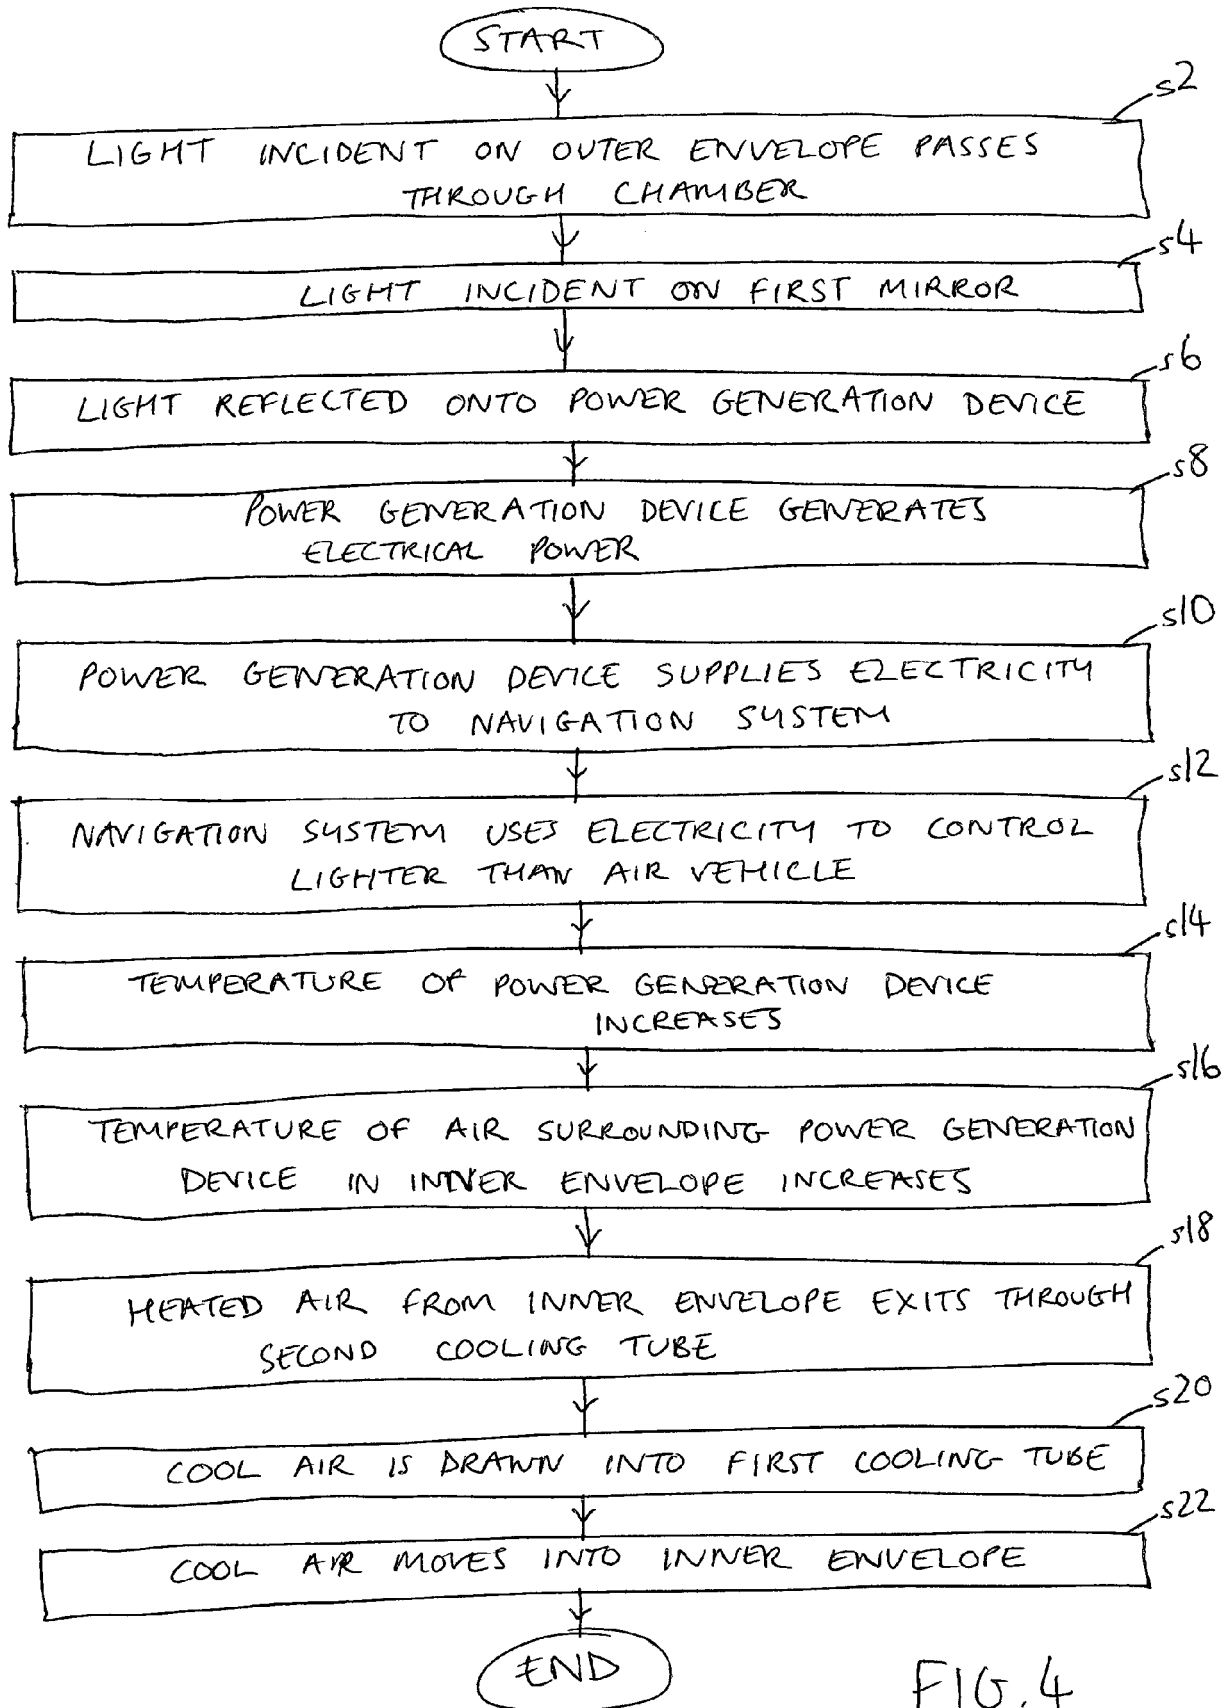 START
s2
LIGHT INCIDENT ON OUTER ENVELOPE PASSES
THROUGH CHAMBER
s4
LIGHT INCIDENT ON FIRST MIRROR
s6
LIGHT REFLECTED ONTO POWER GENERATION DEVICE
s8
POWER GENERATION DEVICE GENERATES
ELECTRICAL POWER
s10
POWER GENERATION DEVICE SUPPLIES ELECTRICITY
TO NAVIGATION SYSTEM
s12
NAVIGATION SYSTEM USES ELECTRICITY TO CONTROL
LIGHTER THAN AIR VEHICLE
s14
TEMPERATURE OF POWER GENERATION DEVICE
INCREASES
s16
TEMPERATURE OF AIR SURROUNDING POWER GENERATION
DEVICE IN INNER ENVELOPE INCREASES
s18
HEATED AIR FROM INNER ENVELOPE EXITS THROUGH
SECOND COOLING TUBE
s20
COOL AIR IS DRAWN INTO FIRST COOLING TUBE
s22
COOL AIR MOVES INTO INNER ENVELOPE
END
FIG. 4